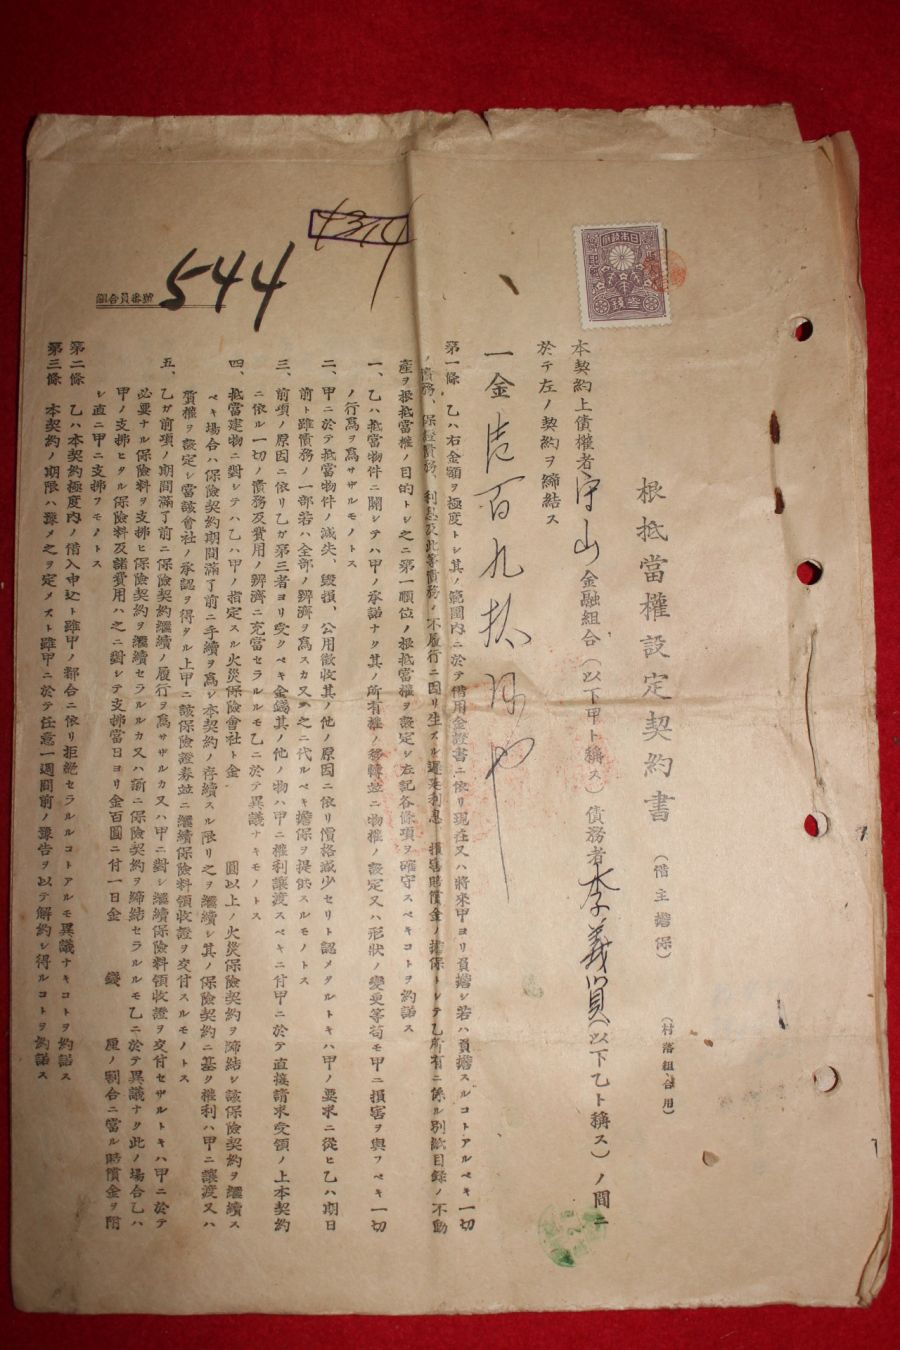 根抵當權設定契約書 （借主擔保） （村落組合用）
本契約上債權者守山金融組合（以下甲ト稱ス）債務者李義貿（以下乙ト稱ス）ノ間ニ
於テ左ノ契約ヲ締結ス
一金壱百九拾圓也
第一條 乙ハ右金額ヲ極度トシ其ノ範圍內ニ於テ借用金證書ニ依リ現在又ハ將來甲ヨリ負擔シ若ハ負擔スルコトアルベキ一切
ノ債務、保證債務、利息及此等債務ノ不履行ニ因リ生スル遲延利息、損害賠償金ノ擔保トシテ乙所有ニ係ル別紙目錄ノ不動
產ヲ根抵當權ノ目的トシ之ニ第一順位ノ根抵當權ヲ設定シ左記各條項ヲ確守スベキコトヲ約諾ス
一、乙ハ抵當物件ニ關シテハ甲ノ承諾ナク其ノ所有權ノ移轉並ニ物權ノ設定又ハ形狀ノ變更等苟モ甲ニ損害ヲ與フベキ一切
ノ行爲ヲ爲サザルモノトス
二、甲ニ於テ抵當物件ノ滅失、毀損、公用徵收其ノ他ノ原因ニ依リ價格減少セリト認メタルトキハ甲ノ要求ニ從ヒ乙ハ期日
前ト雖債務ノ一部若ハ全部ノ辨濟ヲ爲スカ又ハ之ニ代ルベキ擔保ヲ提供スルモノトス
三、前項ノ原因ニ依リ乙ガ第三者ヨリ受クベキ金錢其ノ他ノ物ハ甲ニ權利讓渡スベキニ付甲ニ於テ直接請求受領ノ上本契約
ニ依ル一切ノ債務及費用ノ辨濟ニ充當セラルルモ乙ニ於テ異議ナキモノトス
四、抵當建物ニ對シテハ乙ハ甲ノ指定スル火災保險會社ト金 圓以上ノ火災保險契約ヲ締結シ該保險契約ヲ繼續ス
ベキ場合ハ保險契約期間滿了前ニ手續ヲ爲シ本契約ノ存續スル限リ之ヲ繼續シ其ノ保險契約ニ基ク權利ハ甲ニ讓渡又ハ
質權ヲ設定シ當該會社ノ承認ヲ得タル上甲ニ該保險證券並ニ繼續保險料領收證ヲ交付スルモノトス
五、乙ガ前項ノ期間滿了前ニ保險契約繼續ノ履行ヲ爲サザルカ又ハ甲ニ對シ繼續保險料領收證ヲ交付セザルトキハ甲ニ於テ
必要ナル保險料ヲ支拂ヒ保險契約ヲ繼續セラルルカ又ハ新ニ保險契約ヲ締結セラルルモ乙ニ於テ異議ナク此ノ場合乙ハ
甲ノ支拂ヒタル保險料及諸費用ハ之ニ對シテ支拂當日ヨリ金百圓ニ付一日金 錢 厘ノ割合ニ當ル賠償金ヲ附
シ直ニ甲ニ支拂フモノトス
第二條 乙ハ本契約極度內ノ借入申込ト雖甲ノ都合ニ依リ拒絕セラルルコトアルモ異議ナキコトヲ約諾ス
第三條 本契約ノ期限ハ豫メ之ヲ定メスト雖甲ニ於テ任意一週間前ノ豫告ヲ以テ解約シ得ルコトヲ約諾ス
組合員番號 544